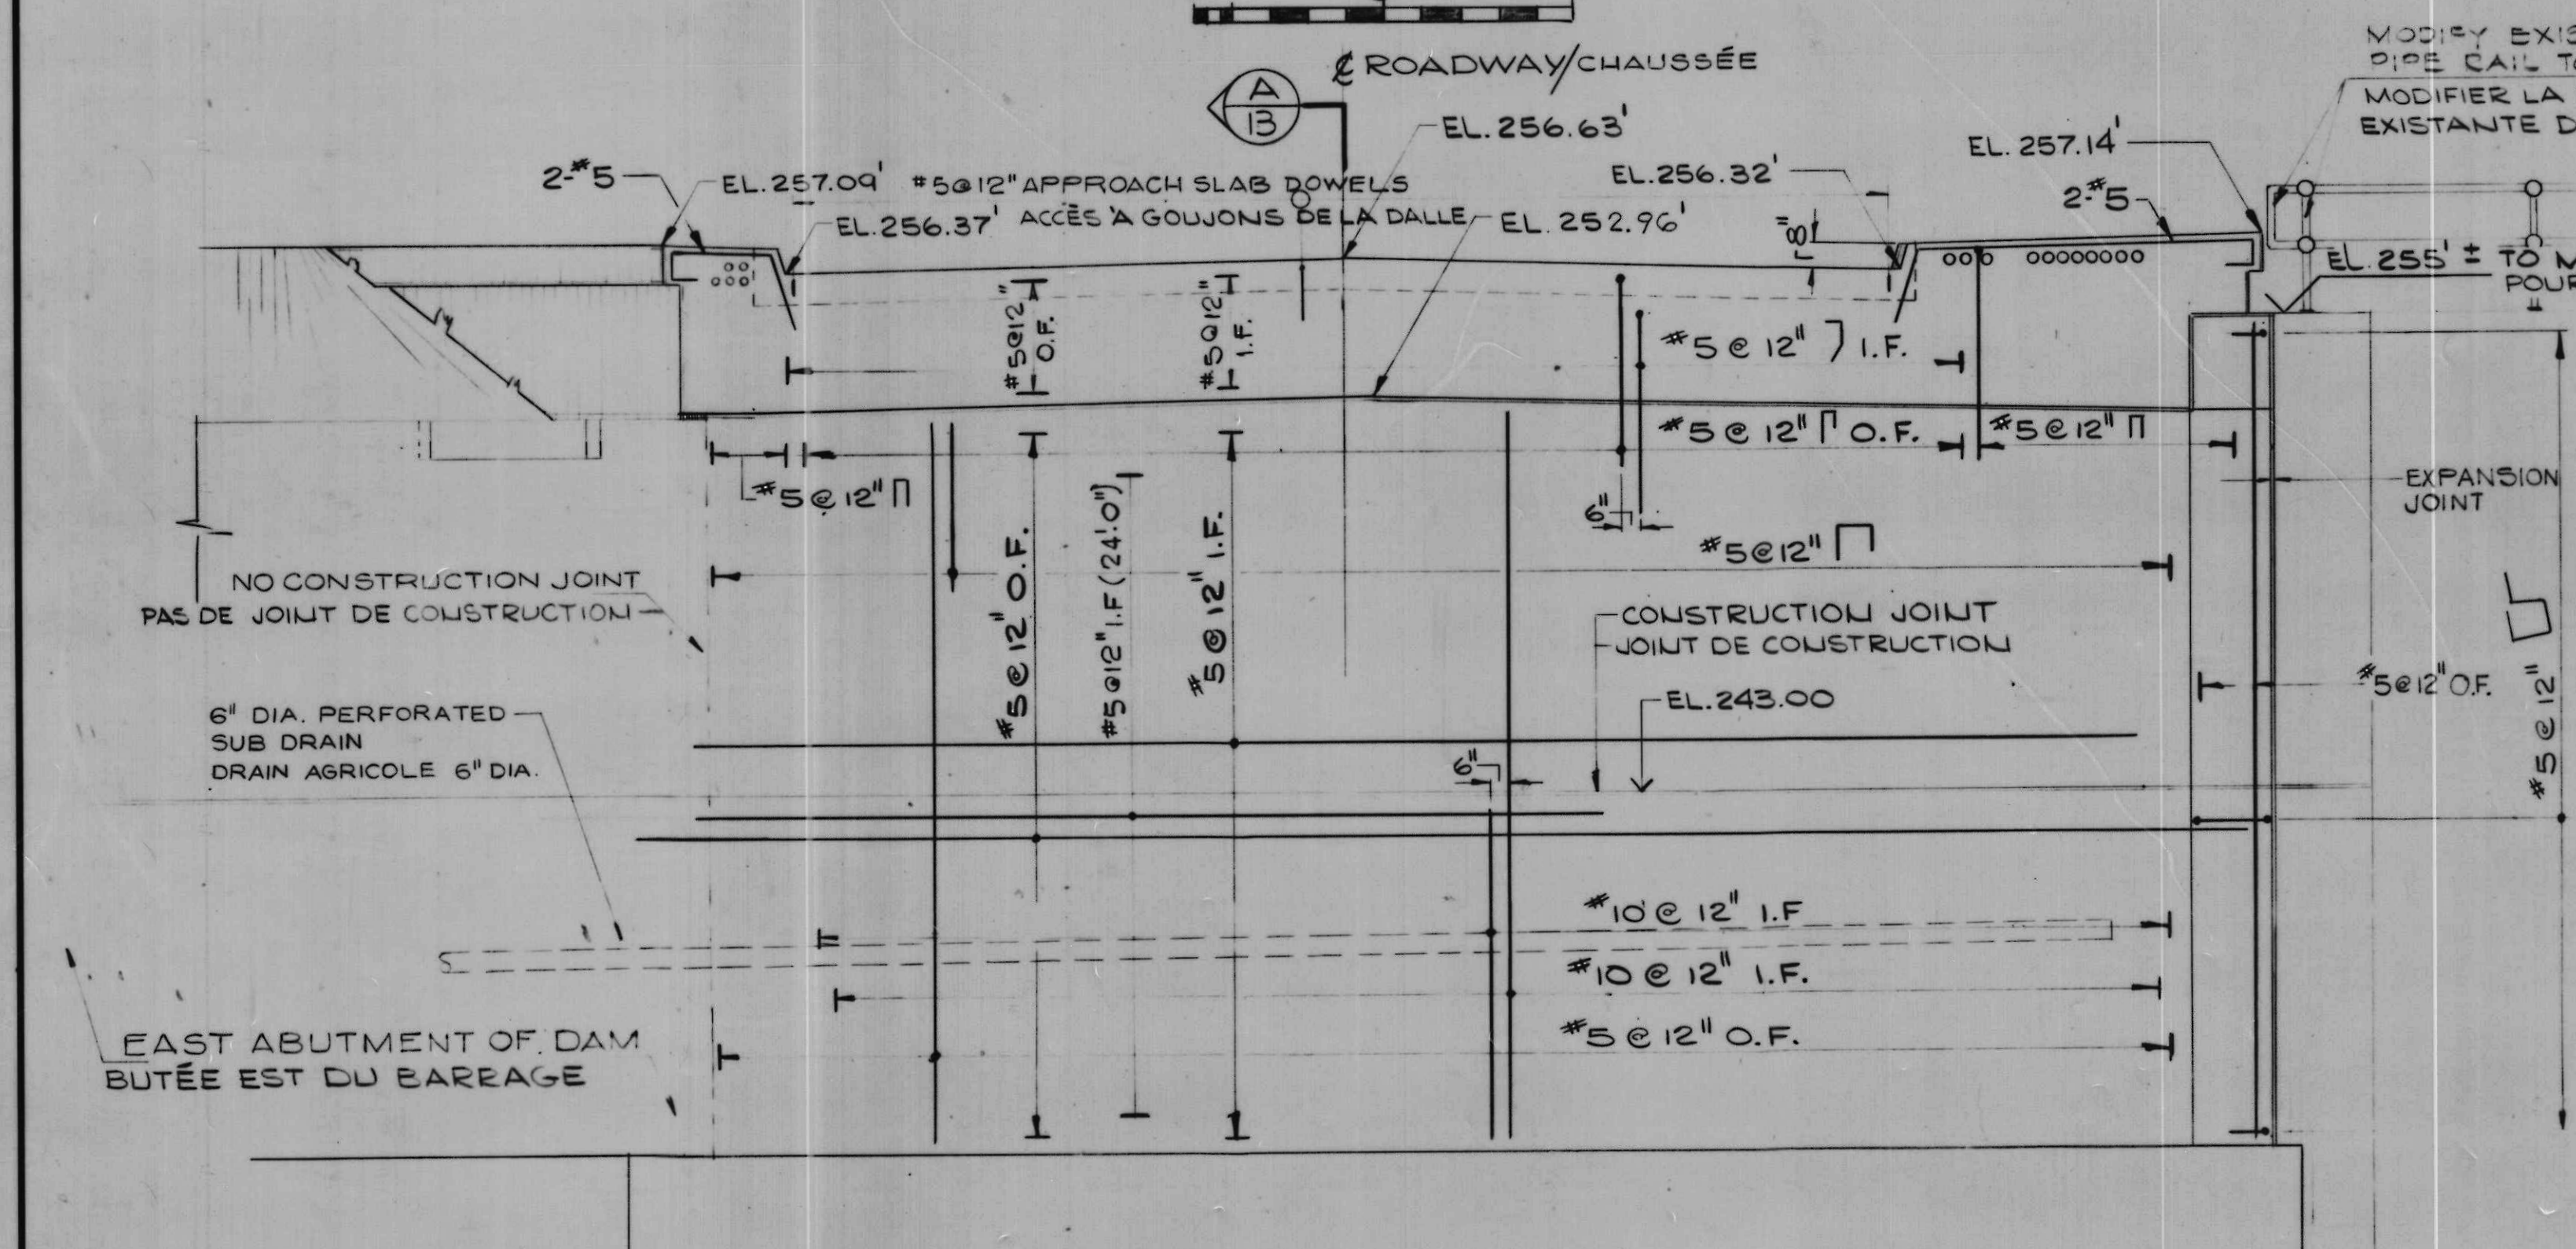 ℄ ROADWAY/CHAUSSÉE
A
13
EL. 256.63'
MODIFY EXIS
PIPE RAIL TO
MODIFIER LA
EXISTANTE D
EL. 257.14'
2-#5
EL. 257.09'
#5@12" APPROACH SLAB DOWELS
ACCÈS À GOUJONS DE LA DALLE
EL. 256.37'
EL. 252.96'
EL. 256.32'
8"
2-#5
EL. 255' ± TO M
POUR
#5@12"
O.F.
#5@12"
I.F.
#5 @ 12" I.F.
#5 @ 12" O.F.
#5@12"
#5@12"
6"
#5@12"
EXPANSION
JOINT
NO CONSTRUCTION JOINT
PAS DE JOINT DE CONSTRUCTION
#5@12" O.F.
#5@12" I.F (24'.0")
#5@12" I.F.
CONSTRUCTION JOINT
JOINT DE CONSTRUCTION
EL. 243.00
6"
#5@12" O.F.
#5@12"
6" DIA. PERFORATED
SUB DRAIN
DRAIN AGRICOLE 6" DIA.
#10 @ 12" I.F
#10 @ 12" I.F.
#5 @ 12" O.F.
EAST ABUTMENT OF DAM
BUTÉE EST DU BARRAGE